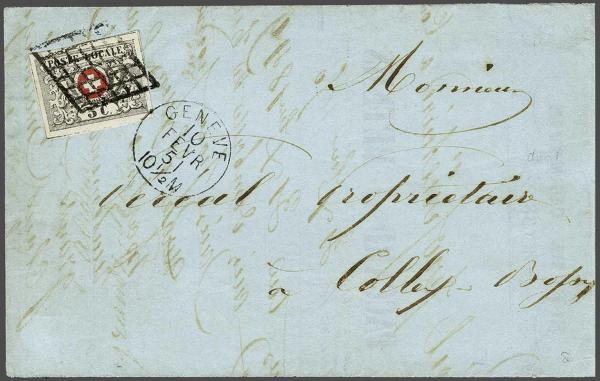 POSTE LOCALE
5 c
GENEVE
10
FEVR
51
10½M
Monsieur
propriétaire
à Colly-Bossy